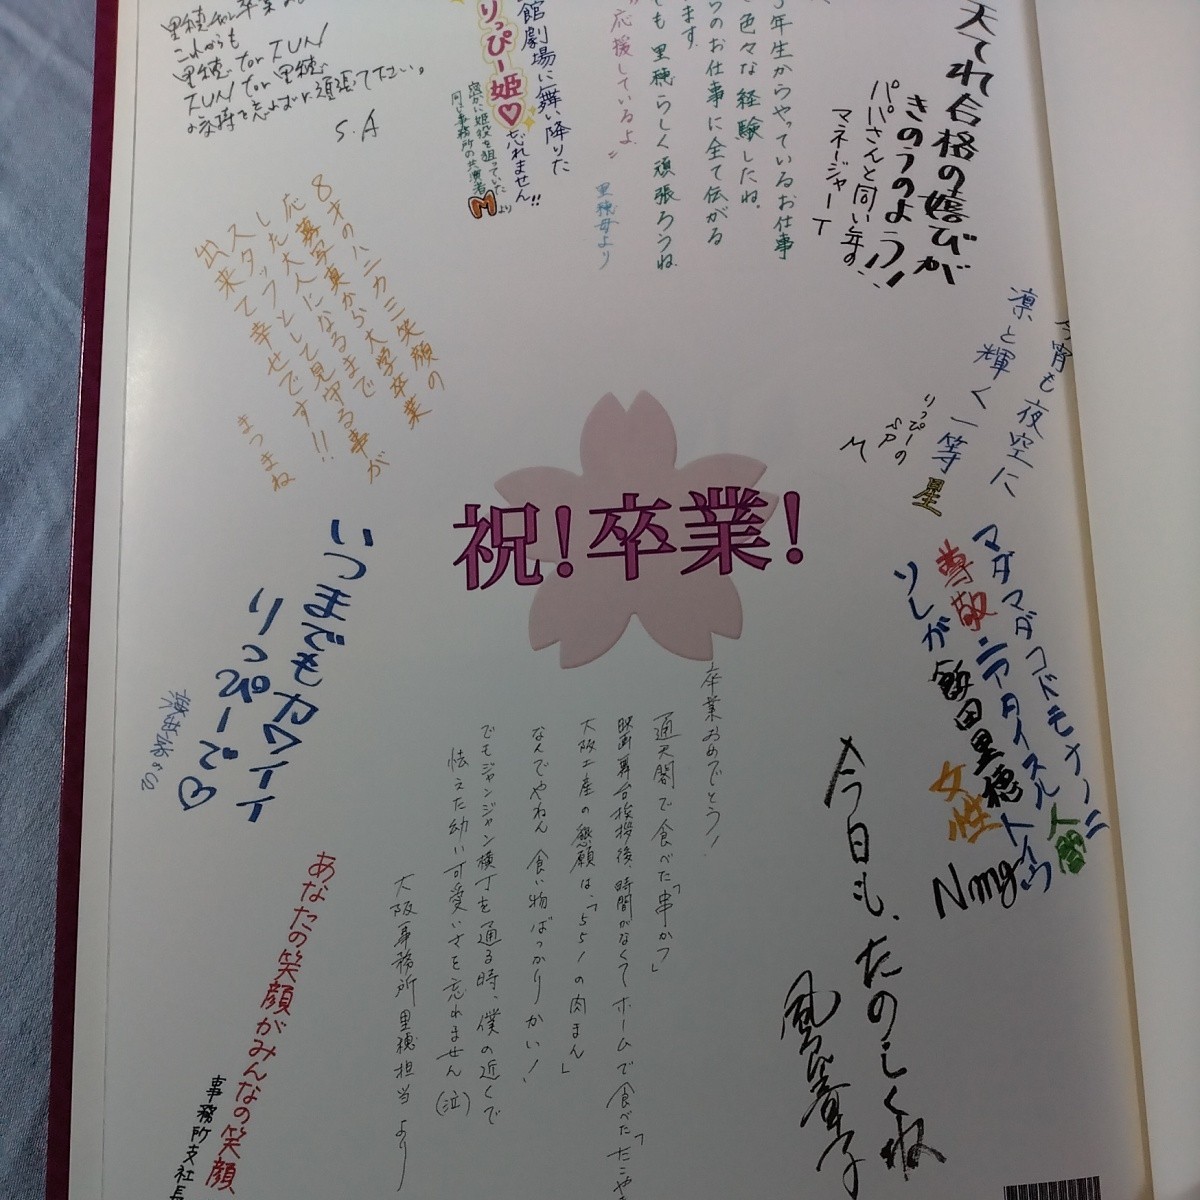 天てれ合格の嬉びが
きのうのよう!
パパさんと同い年の、
マネージャーT
年生からやっているお仕事
色々な経験したね。
らのお仕事に全て伝がる
ます。
も里穂らしく頑張ろうね
応援しているよ。
里穂母より
館劇場に舞い降りた
りっぴー姫♡
忘れません!!
密かに姫役を狙っていた
同じ事務所の共演者
Mより
これからも
里穂 for TUN
TUN for 里穂
S.A
8才のハニカミ笑顔の
応募写真から大学卒業
した大人になるまで
スタッフとして見守る事が
出来て幸せです!!
まつまね
今宵も夜空に
凛と輝く一等星
りっぴーの
SP
M
祝!卒業!
マダマダコドモナノニ
尊敬ニアタイスル人間
ソレガ飯田里穂トイウ
女性
いつまでもカワイイ
りっぴーで♡
卒業おめでとう!
通天閣で食べた「串かつ」
映画舞台挨拶後、時間がなくてホームで食べた「たこや
大阪土産の懇願は、「551の肉まん」
なんでやねん 食い物ばっかりかい!
でもジャンジャン横丁を通る時、僕の近くで
怯えた幼い可愛いさを忘れません(泣)
大阪事務所 里穂担当 より
今日も、たのしくね
あなたの笑顔がみんなの笑顔
事務所支社長